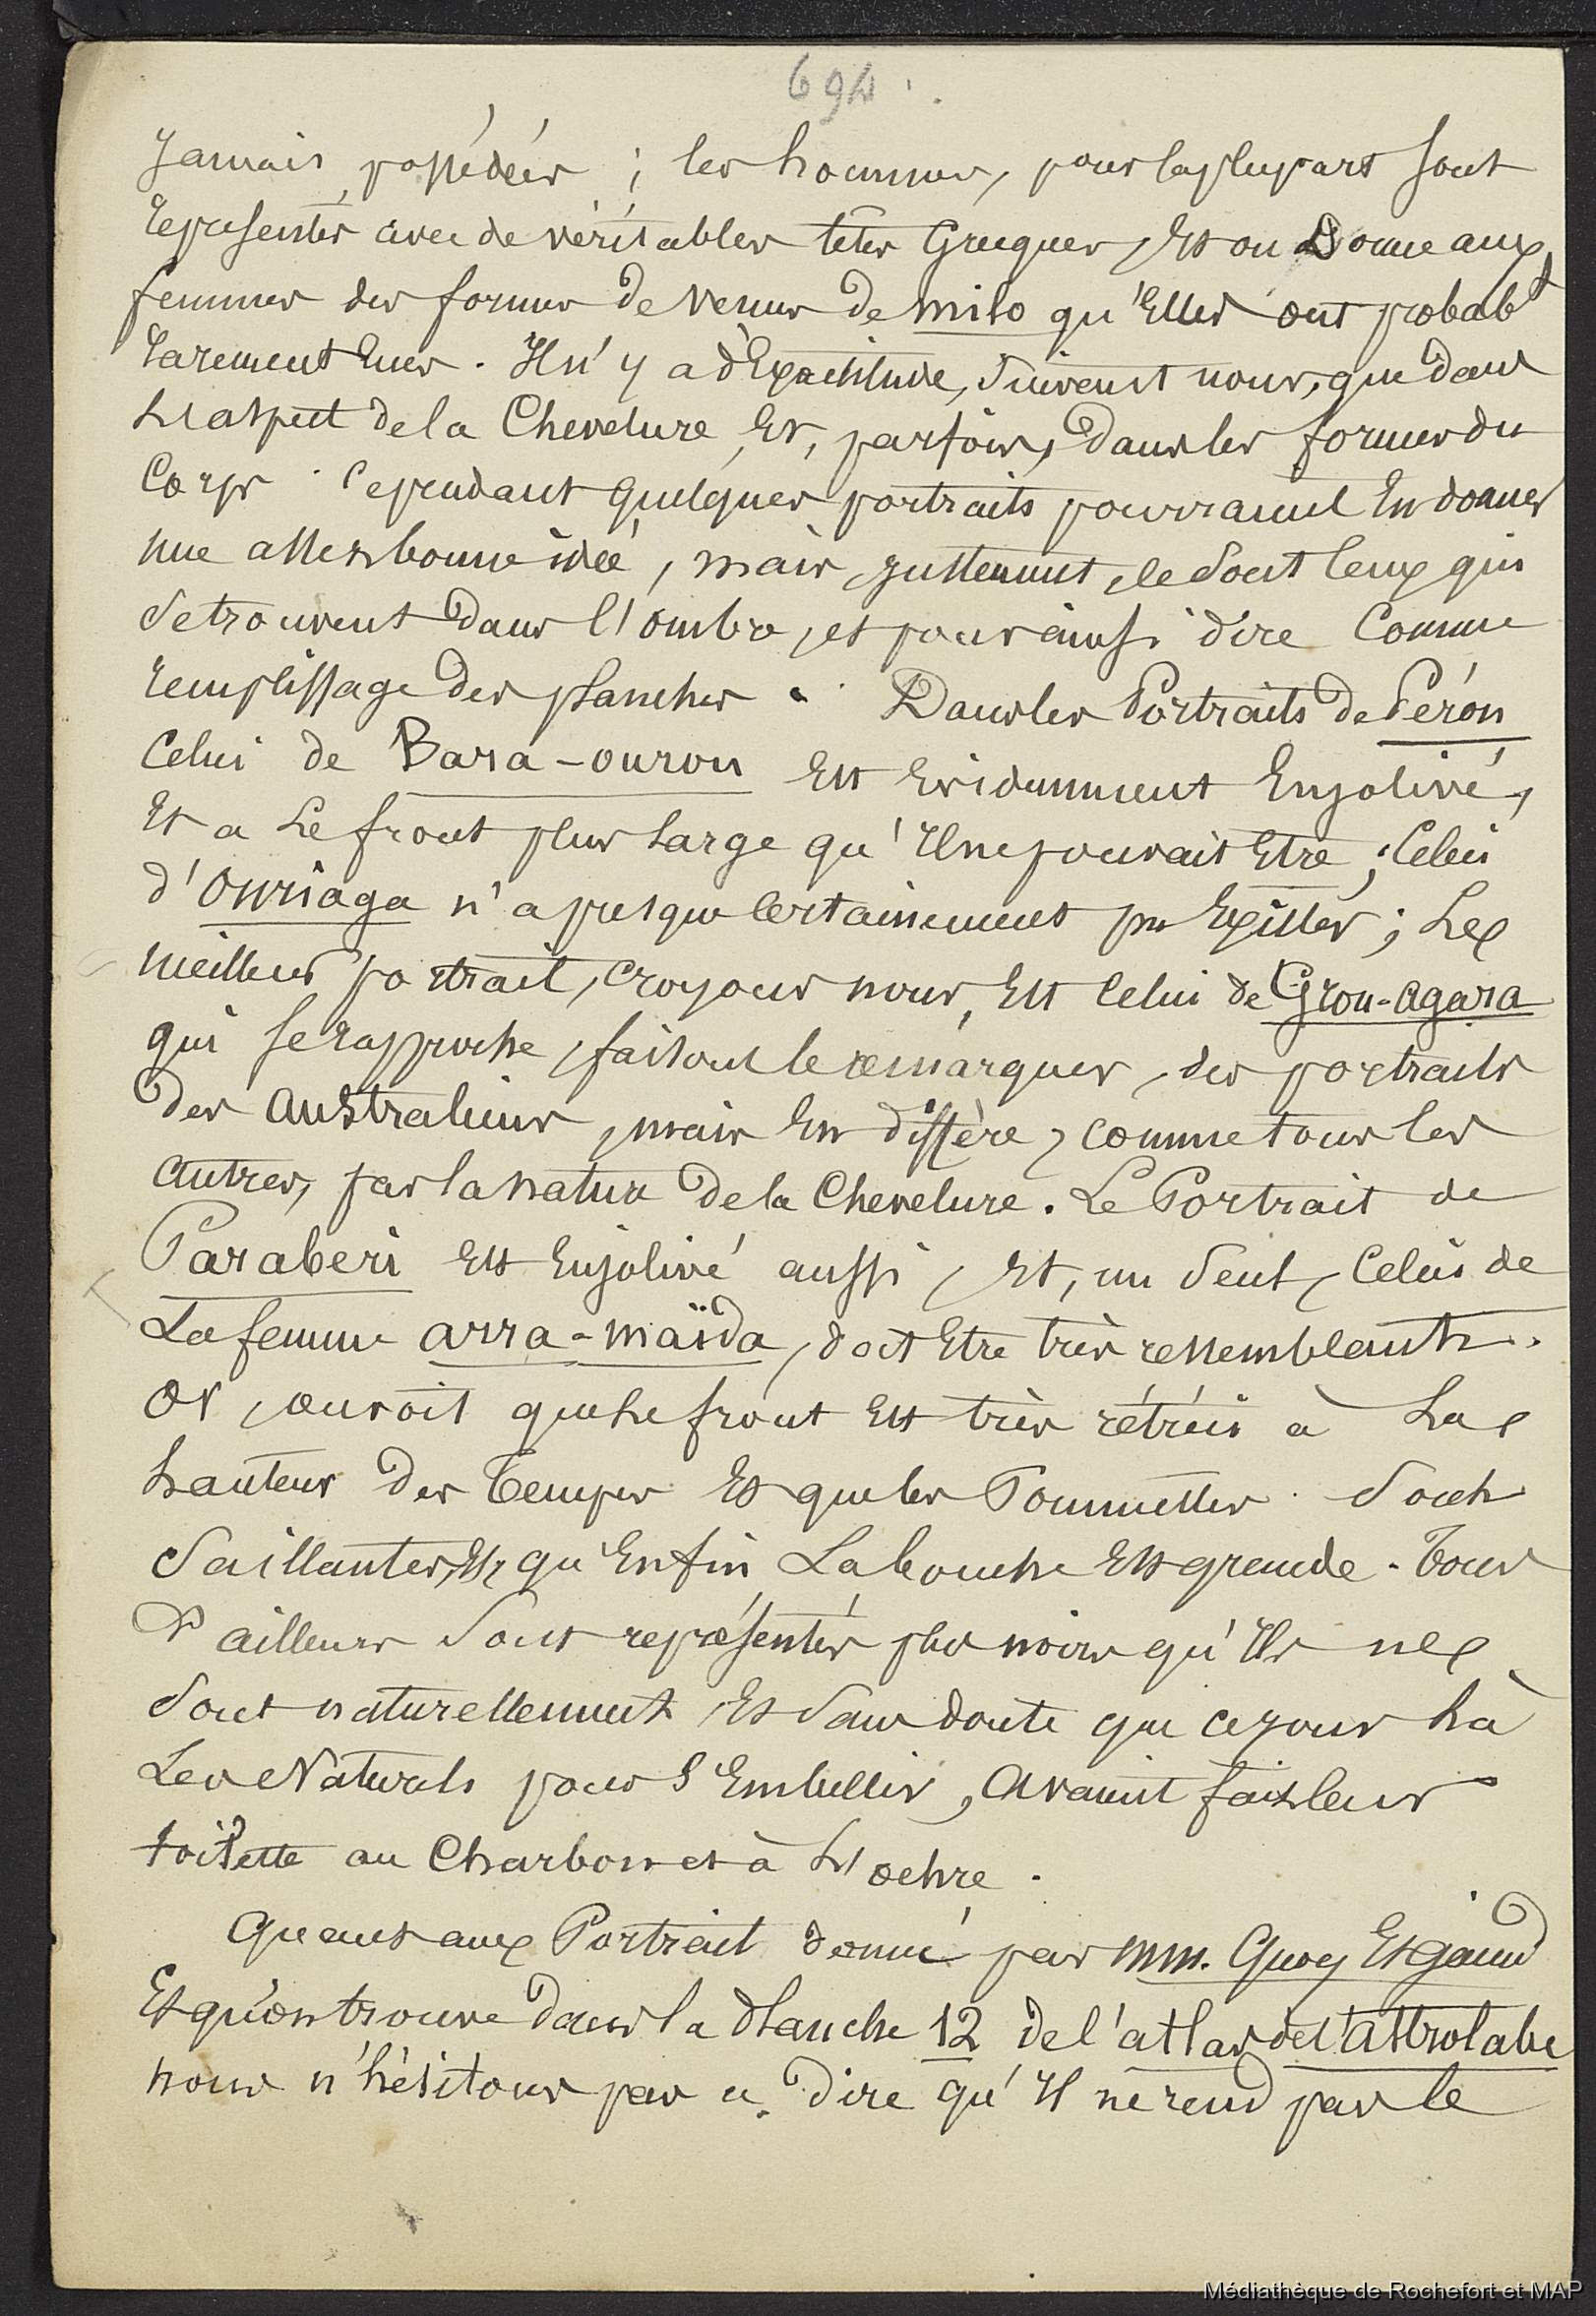 694.
Jamais possédées ; les hommes, pour la plupart sont
représentés avec de véritables têtes Grecques, Et on Donne aux
femmes des formes de Venus de milo qu'Elles ont probabt
rarement Eues. Il n'y a d'Exactitude, suivant nous, que dans
L'aspect de la Chevelure Et, parfois, dans les formes du
Corps. Cependant quelques portraits pourraient En donner
une assez bonne idée, mais, justement, ce sont Ceux qui
se trouvent dans l'ombre, et pour ainsi dire Comme
remplissage des planches. Dans les Portraits de Péron
Celui de Bara-ourou Est Evidemment Enjolivé,
Et a Le front plus large qu'Il ne pouvait Etre ; Celui
d'Ouriaga n'a presque Certainement pu Exister ; Le
meilleur portrait, croyons nous, Est Celui de Grou-agara
qui se rapproche, faisons le remarquer, des portraits
des Australiens, mais En diffère, comme tous les
autres, par la nature de la Chevelure. Le Portrait de
Paraberi Est Enjolivé aussi, Et, un seul, Celui de
La femme arra-maïda, doit Etre très ressemblant.
Or, on voit que Le front Est très rétréci à La
hauteur des Tempes Et que les Pommettes sont
Saillantes, Et qu'Enfin La bouche Est grande. Tous
d'ailleurs sont représentés plus noirs qu'Ils ne
sont naturellement Et sans doute que ce jour là
Les Naturels pour s'Embellir, Avaient fait leur
toilette au Charbon et à L'ochre.
Quant aux Portrait donné par mm. Quoy Et gaimd
Et qu'on trouve dans la planche 12 de l'atlas de l'astrolabe
nous n'hésitons pas a dire qu'Il ne rend pas le
Médiathèque de Rochefort et MAP